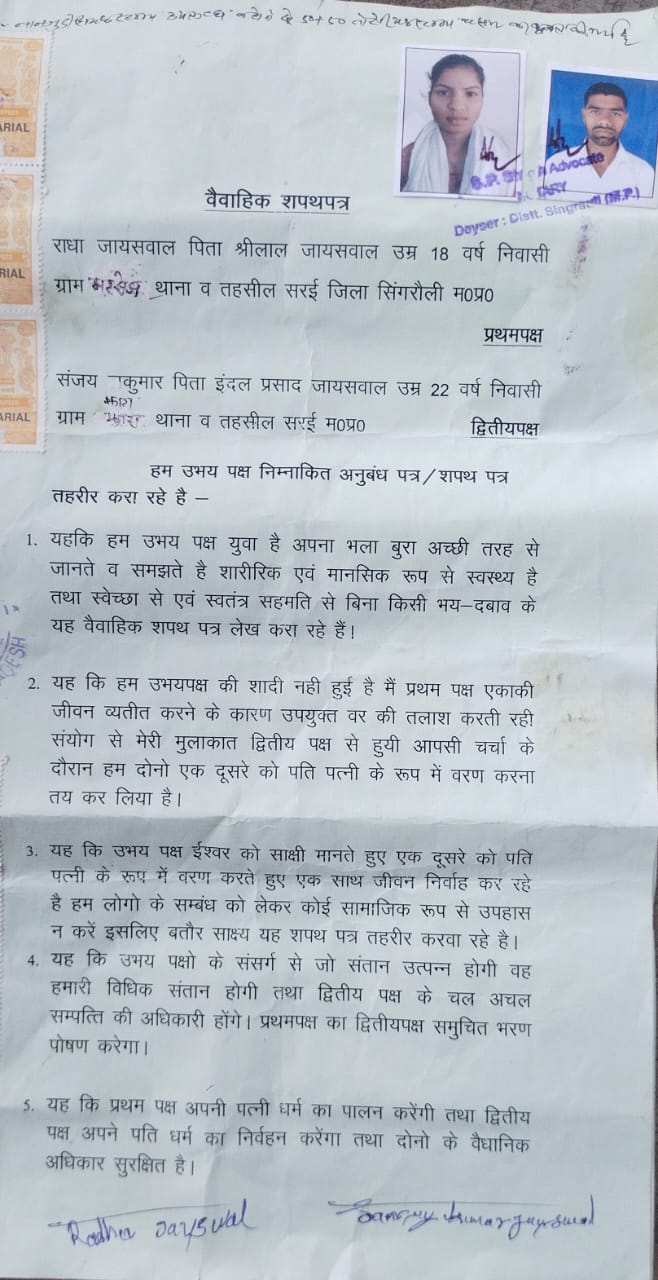 ARIAL
RIAL
ARIAL
Advocate
Deyser : Distt. Singrauli (M.P.)
वैवाहिक शपथपत्र
राधा जायसवाल पिता श्रीलाल जायसवाल उम्र 18 वर्ष निवासी
ग्राम थाना व तहसील सरई जिला सिंगरौली म0प्र0
प्रथमपक्ष
संजय कुमार पिता इंदल प्रसाद जायसवाल उम्र 22 वर्ष निवासी
ग्राम झारा थाना व तहसील सरई म0प्र0 द्वितीयपक्ष
हम उभय पक्ष निम्नाकित अनुबंध पत्र/शपथ पत्र
तहरीर करा रहे है –
1. यहकि हम उभय पक्ष युवा है अपना भला बुरा अच्छी तरह से
जानते व समझते है शारीरिक एवं मानसिक रूप से स्वस्थ्य है
तथा स्वेच्छा से एवं स्वतंत्र सहमति से बिना किसी भय–दबाव के
यह वैवाहिक शपथ पत्र लेख करा रहे हैं!
2. यह कि हम उभयपक्ष की शादी नही हुई है मैं प्रथम पक्ष एकाकी
जीवन व्यतीत करने के कारण उपयुक्त वर की तलाश करती रही
संयोग से मेरी मुलाकात द्वितीय पक्ष से हुयी आपसी चर्चा के
दौरान हम दोनो एक दूसरे को पति पत्नी के रूप में वरण करना
तय कर लिया है।
3. यह कि उभय पक्ष ईश्वर को साक्षी मानते हुए एक दूसरे को पति
पत्नी के रूप में वरण करते हुए एक साथ जीवन निर्वाह कर रहे
है हम लोगो के सम्बंध को लेकर कोई सामाजिक रूप से उपहास
न करें इसलिए बतौर साक्ष्य यह शपथ पत्र तहरीर करवा रहे है।
4. यह कि उभय पक्षो के संसर्ग से जो संतान उत्पन्न होगी वह
हमारी विधिक संतान होगी तथा द्वितीय पक्ष के चल अचल
सम्पत्ति की अधिकारी होंगे। प्रथमपक्ष का द्वितीयपक्ष समुचित भरण
पोषण करेगा।
5. यह कि प्रथम पक्ष अपनी पत्नी धर्म का पालन करेंगी तथा द्वितीय
पक्ष अपने पति धर्म का निर्वहन करेंगा तथा दोनो के वैधानिक
अधिकार सुरक्षित है।
Radha Jayswal Sanjay kumar jayswal